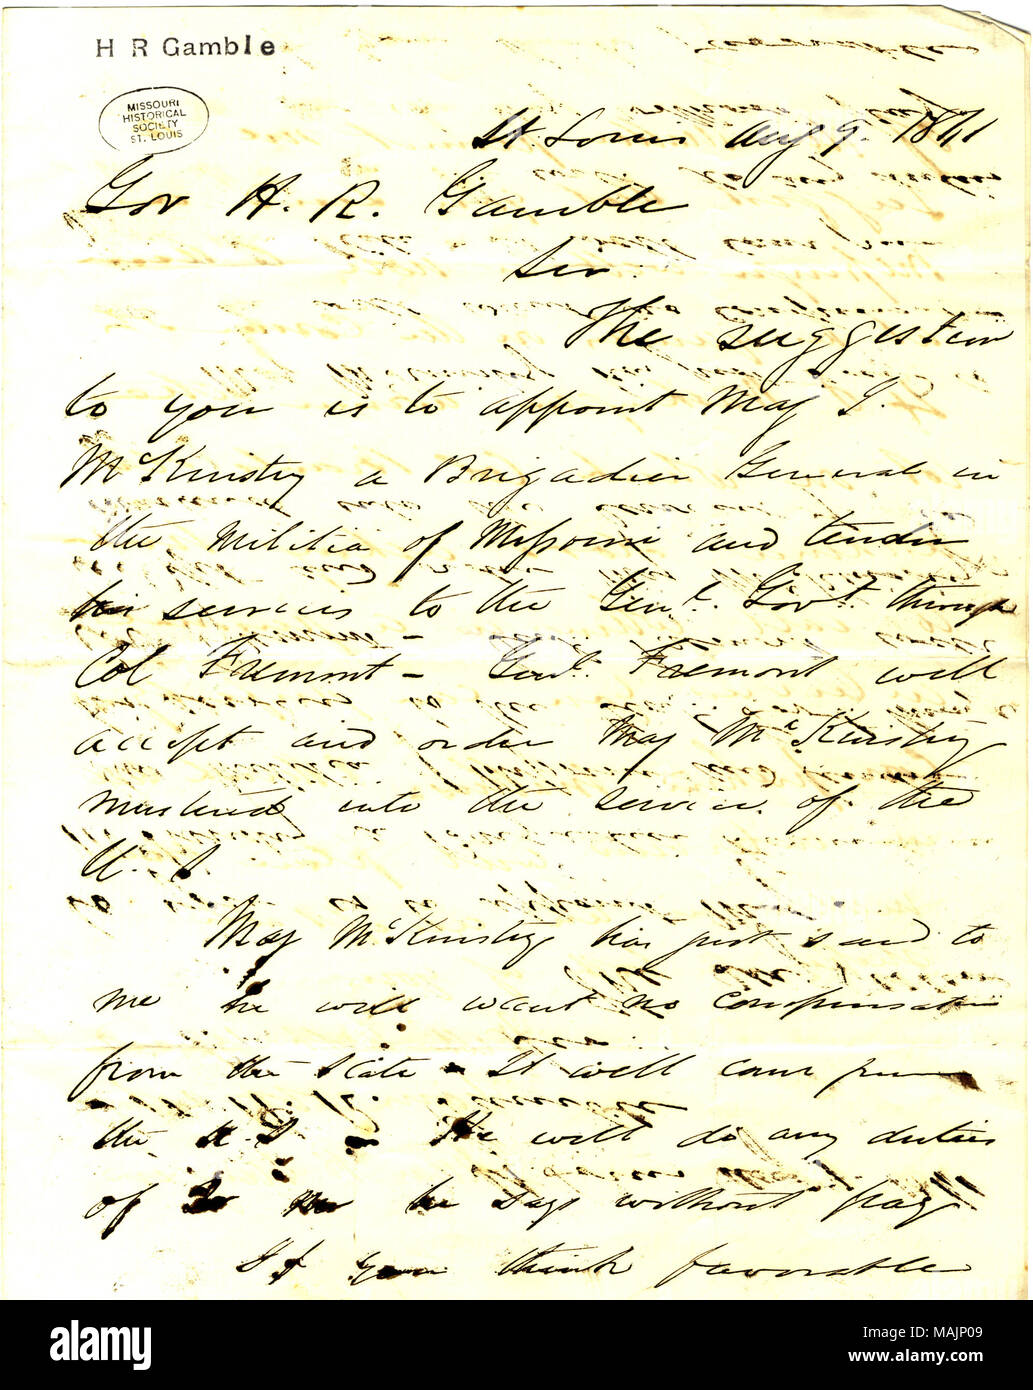 H R Gamble
MISSOURI
HISTORICAL
SOCIETY
ST. LOUIS
St. Louis Aug 9th 1861
Gov H. R. Gamble
Sir.
The suggestion
to you is to appoint Maj J.
McKinstry a Brigadier General in
the Militia of Missouri and tender
his services to the Genl. Govt through
Col Fremont – Genl. Fremont will
accept and order Maj McKinstry
mustered into the service of the
U. S.
Maj McKinstry has just said to
me he will want no compensation
from the State It will come from
the U.S He will do any duties
of he says without pay
If you think favorable
alamy
Image ID: MAJP09
www.alamy.com